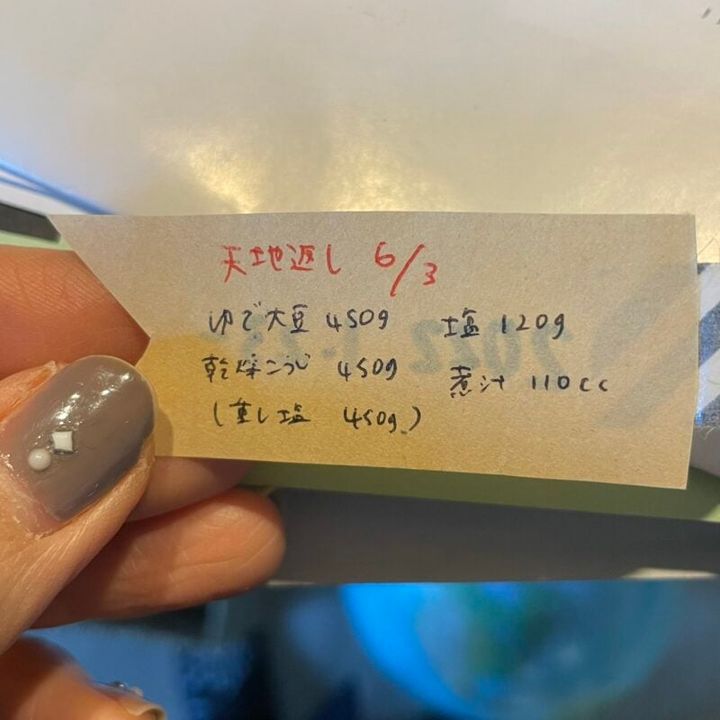 天地返し 6/3
ゆで大豆 450g 塩 120g
乾燥こうじ 450g 煮汁 110cc
(重し塩 450g)